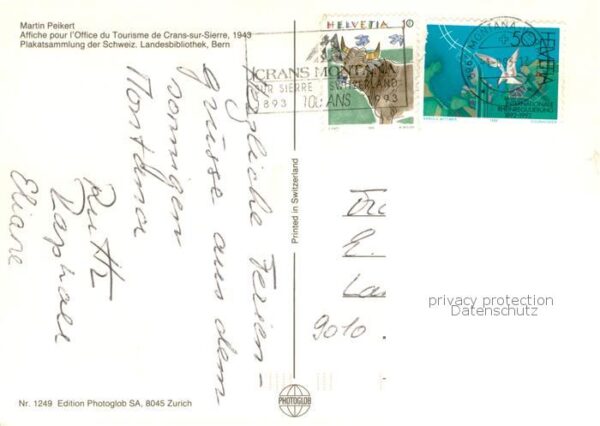 Martin Peikert
Affiche pour l'Office du Tourisme de Crans-sur-Sierre, 1943
Plakatsammlung der Schweiz. Landesbibliothek, Bern
HELVETIA
CRANS MONTANA
SUR SIERRE SWITZERLAND
1893 100 ANS 1993
50
HELVETIA
INTERNATIONALE
RHEINREGULIERUNG
1892-1992
Herzliche Ferien-
grüsse aus dem
sonnigen
Montana
Ruth
Raphael
Eliane
Printed in Switzerland
9010
privacy protection
Datenschutz
Nr. 1249 Edition Photoglob SA, 8045 Zurich
PHOTOGLOB